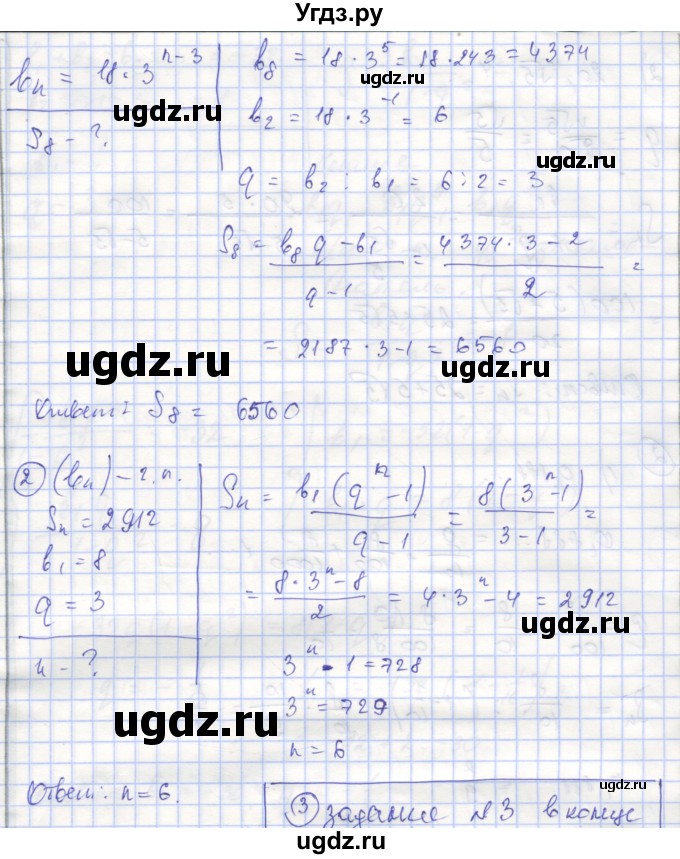 Угдз.ру
bₙ = 18 · 3ⁿ⁻³
S₈ - ?
b₈ = 18 · 3⁵ = 18 · 243 = 4374
ugdz.ru
ugdz.ru
b₂ = 18 · 3⁻¹ = 6
q = b₂ : b₁ = 6 : 2 = 3
S₈ = (b₈ q - b₁)/(q - 1) = (4374 · 3 - 2)/2 =
= 2187 · 3 - 1 = 6560
ugdz.ru
ugdz.ru
Ответ: S₈ = 6560
② (bₙ) - г. п.
Sₙ = 2912
b₁ = 8
q = 3
n - ?
Sₙ = b₁(qⁿ - 1)/(q - 1) = 8(3ⁿ - 1)/(3 - 1) =
= (8 · 3ⁿ - 8)/2 = 4 · 3ⁿ - 4 = 2912
ugdz.ru
3ⁿ - 1 = 728
3ⁿ = 729
ugdz.ru
n = 6
ugdz.ru
Ответ: n = 6.
③ задание №3 в конце
ugdz.ru